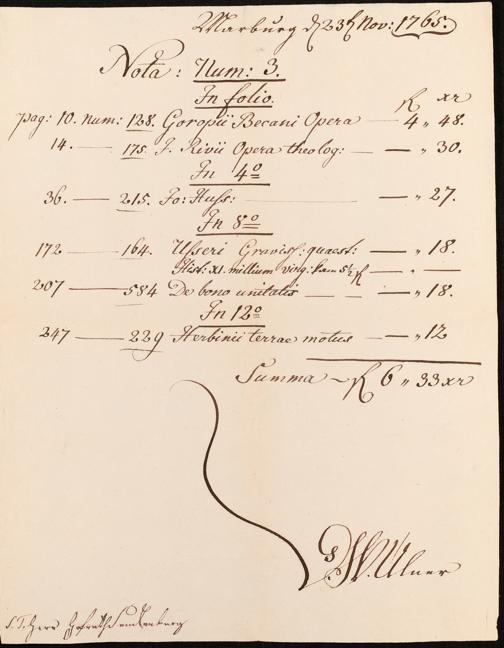 Marburg d 23 Nov: 1765.
Nota: Num: 3.
In folio.
fl xr
pag: 10. num: 128. Goropii Becani Opera — 4 „ 48.
14. — 175 J. Rivii Opera theolog: — — „ 30.
In 4º
36. — 215. Jo: Huss: — — „ 27.
In 8º
172 — 164. Usseri Gravisſ: quaest: — — „ 18.
Hist: XI. millium virg: kam 5½ fl — „ —
207 — 584 De bono unitatis — — — „ 18.
In 12º
247 — 229 Herbinii terrae motus — — „ 12
Summa — fl 6 „ 33 xr
Ulner
S. T. Herr Hofrath Senckenberg